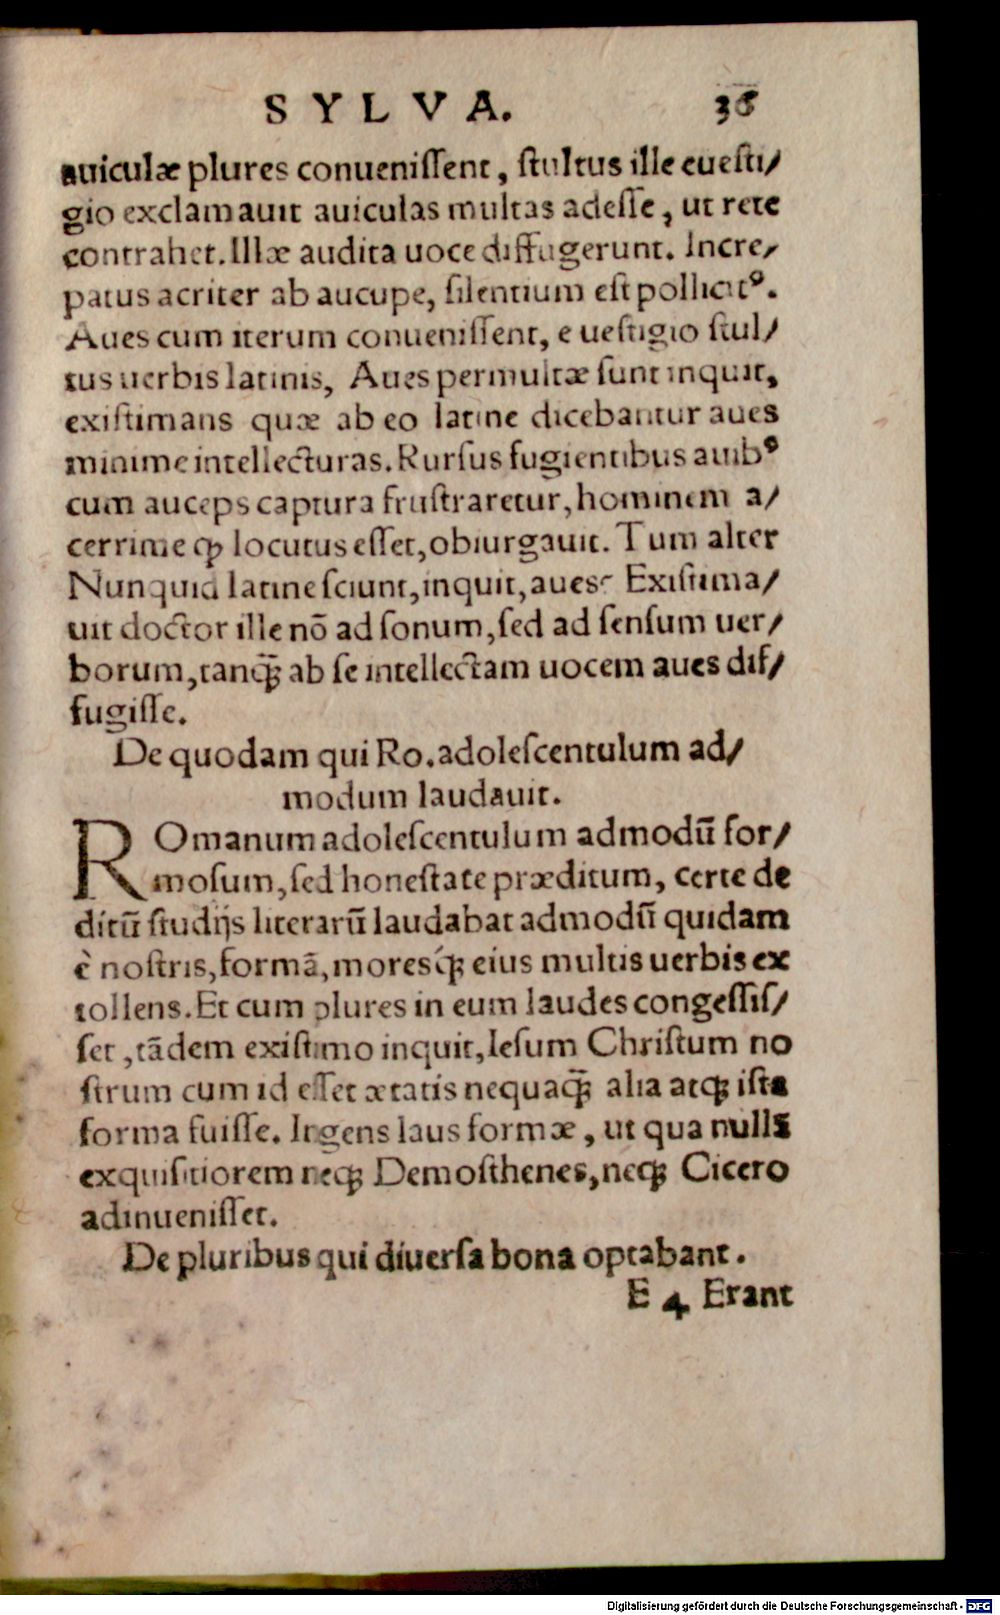 SYLVA. 36
auiculæ plures conueniſſent, ſtultus ille eueſti/
gio exclamauit auiculas multas adeſſe, ut rete
contrahet. Illæ audita uoce diffugerunt. Incre/
patus acriter ab aucupe, ſilentium eſt pollicitꝰ.
Aues cum iterum conueniſſent, e ueſtigio ſtul/
tus uerbis latinis, Aues permultæ ſunt inquit,
exiſtimans quæ ab eo latine dicebantur aues
minime intellecturas. Rurſus fugientibus auibꝰ
cum auceps captura fruſtraretur, hominem a/
cerrime ꝙ locutus eſſet, obiurgauit. Tum alter
Nunquid latine ſciunt, inquit, aues? Exiſtima/
uit doctor ille nō ad ſonum, ſed ad ſenſum uer/
borum, tanq̃ʒ ab ſe intellectam uocem aues dif/
fugiſſe.
De quodam qui Ro. adoleſcentulum ad/
modum laudauit.
ROmanum adoleſcentulum admodū for/
moſum, ſed honeſtate præditum, certe de
ditū ſtudijs literarū laudabat admodū quidam
è noſtris, formā, moresq́ʒ eius multis uerbis ex
tollens. Et cum plures in eum laudes congeſſiſ/
ſet, tādem exiſtimo inquit, Ieſum Chriſtum no
ſtrum cum id eſſet ætatis nequaq̃ʒ alia atqʒ iſta
forma fuiſſe. Ingens laus formæ, ut qua nullā
exquiſitiorem neqʒ Demoſthenes, neqʒ Cicero
adinueniſſet.
De pluribus qui diuerſa bona optabant.
E 4 Erant
Digitalisierung gefördert durch die Deutsche Forschungsgemeinschaft - DFG